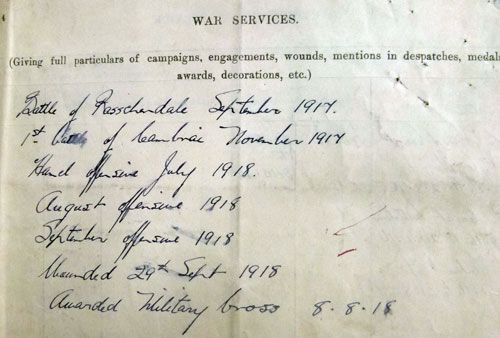 WAR SERVICES.
(Giving full particulars of campaigns, engagements, wounds, mentions in despatches, medals
awards, decorations, etc.)
Battle of Passchendale September 1917.
1st battle of Cambrai November 1917
offensive July 1918.
August offensive 1918
September offensive 1918
Wounded 29th Sept 1918
Awarded Military Cross 8.8.18